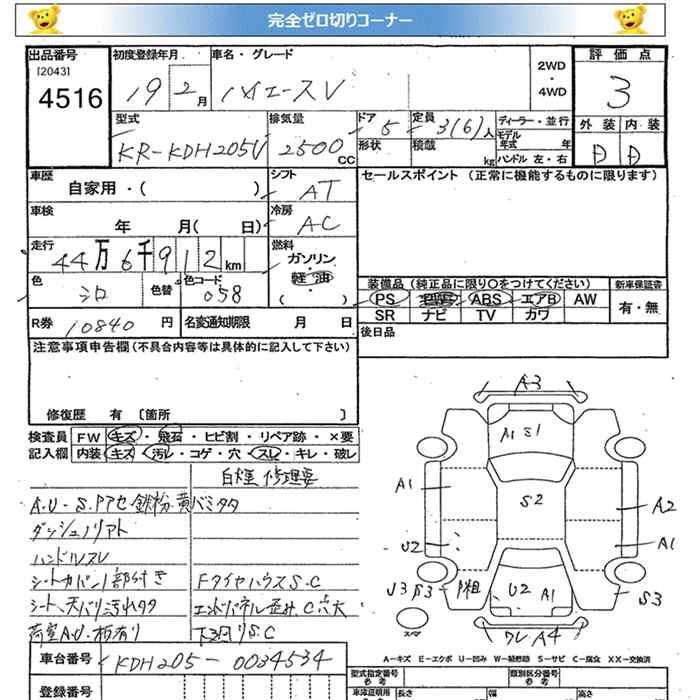 完全ゼロ切りコーナー
出品番号 初度登録年月 車名・グレード 2WD・4WD 評価点
[2043]
4516 19 2月 ハイエースV 3
型式 排気量 ドア 5 定員 3(6)人 ディーラー・並行 外装 内装
KR-KDH205V 2500CC 形状 積載 kg モデル年式 年 D D
ハンドル 左・右
車歴 自家用・( ) シフト AT セールスポイント(正常に機能するものに限ります)
車検 年 月( 日) 冷房 AC
走行 44万6千912km 燃料 ガソリン・軽油 ( )
色 シロ 色替 色コード 058
装備品(純正品に限り○をつけてください) 新車保証書
PS PW ABS エアB AW 有・無
SR ナビ TV カワ
R券 10840円 名変通知期限 月 日 後日品
注意事項申告欄(不具合内容等は具体的に記入して下さい)
修復歴 有 〔箇所 〕
検査員 FW キズ・飛石・ヒビ割・リペア跡・×要
記入欄 内装 キズ・汚レ・コゲ・穴・スレ・キレ・破レ
白煙 修理要
A.U-S.Pアセ 鉄粉 黄バミタタ
ハンドルスレ
シートカバー1部付き FタイヤハウスS.C
シート、天バリ汚れタタ エンドパネル歪み、C穴大
荷室A.U・板有り 下廻りS.C
車台番号 KDH205-0034534
登録番号
A3
A1 S1
A1
S2
A2
U2
A1
U3 S3
U2 A1
S3
スペア
ワレA4
A-キズ E-エクボ U-凹み W-補修跡 S-サビ C-腐食 XX-交換済
型式指定番号 参考 類別区分番号 参考
車庫証明用 長さ 幅 高さ